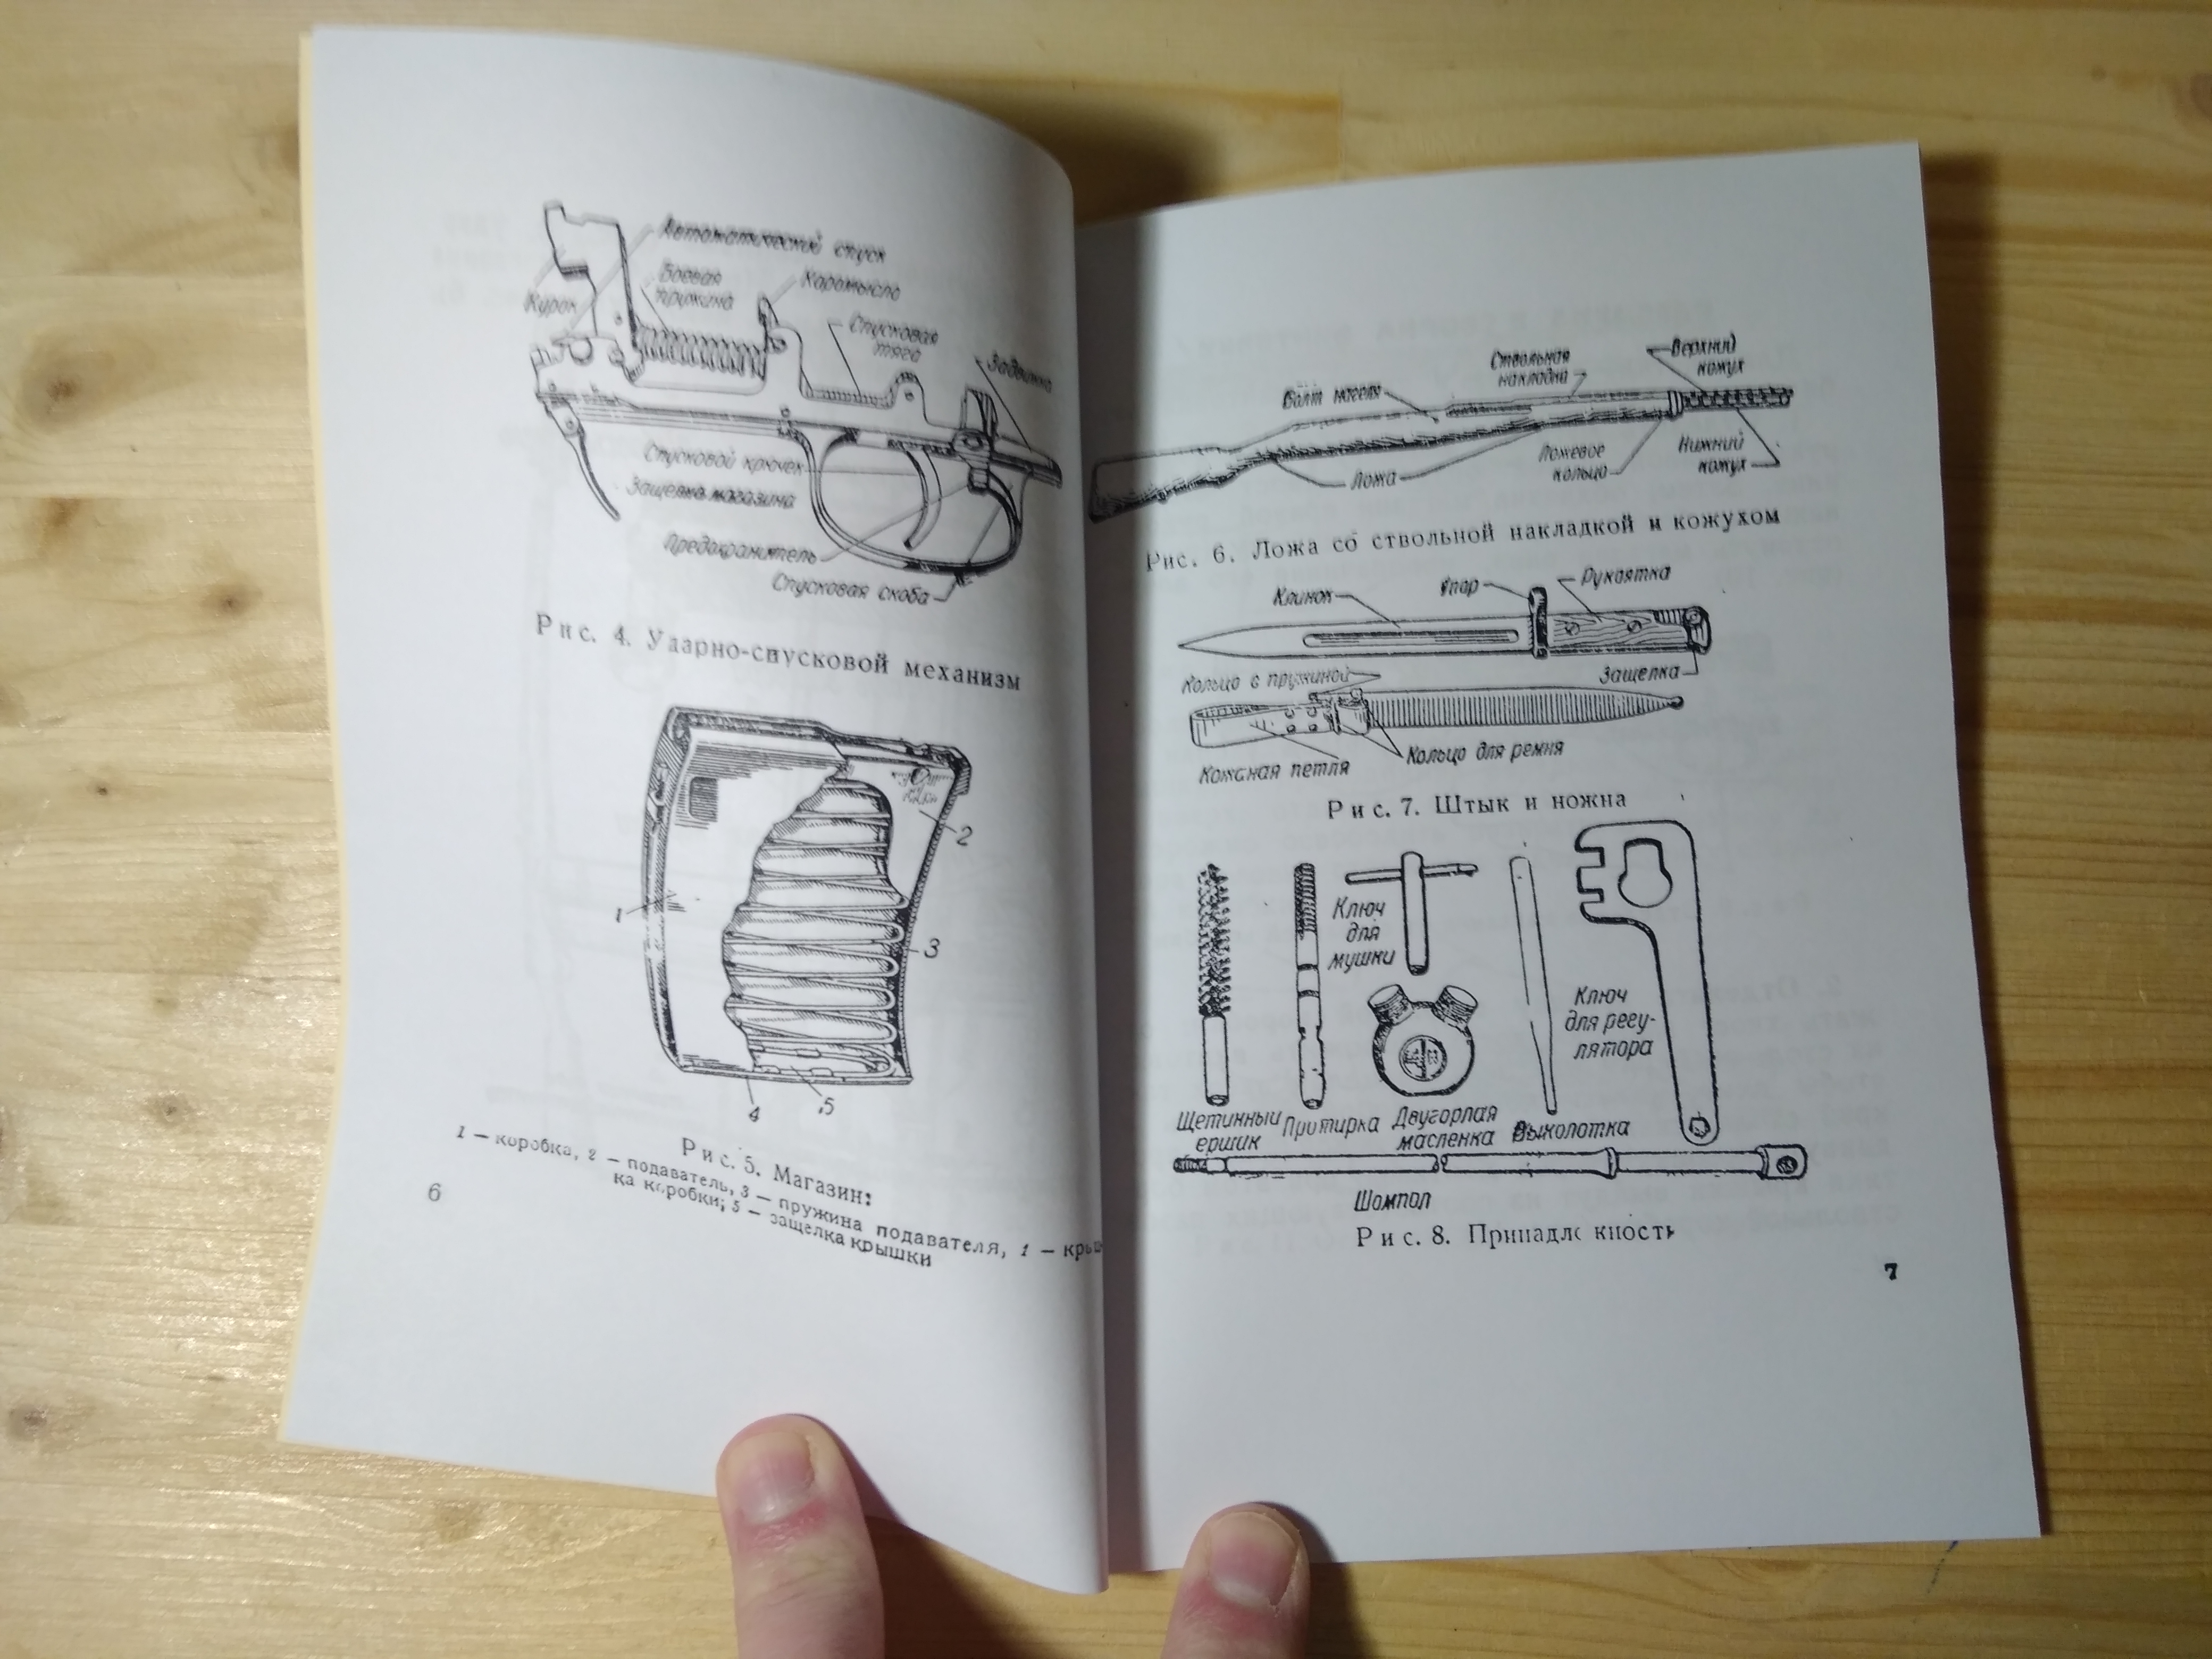 Автоматический спуск
Боевая
пружина
Коромысло
Курок
Спусковая
тяга
Задвижка
Спусковой крючек
Защелка магазина
Предохранитель
Спусковая скоба
Рис. 4. Ударно-спусковой механизм
1
2
3
4
5
Рис. 5. Магазин:
1 — коробка, 2 — подаватель, 3 — пружина подавателя, 1 — крыш-
ка коробки; 5 — защелка крышки
6
Болт нагеля
Ствольная
накладка
Верхний
кожух
Ложа
Ложевое
кольцо
Нижний
кожух
Рис. 6. Ложа со ствольной накладкой и кожухом
Клинок
Упор
Рукоятка
Кольцо с пружиной
Защелка
Кожаная петля
Кольцо для ремня
Рис. 7. Штык и ножна
Ключ
для
мушки
Ключ
для регу-
лятора
Щетинный
ершик
Протирка
Двугорлая
масленка
Выколотка
Шомпол
Рис. 8. Принадлежность
7